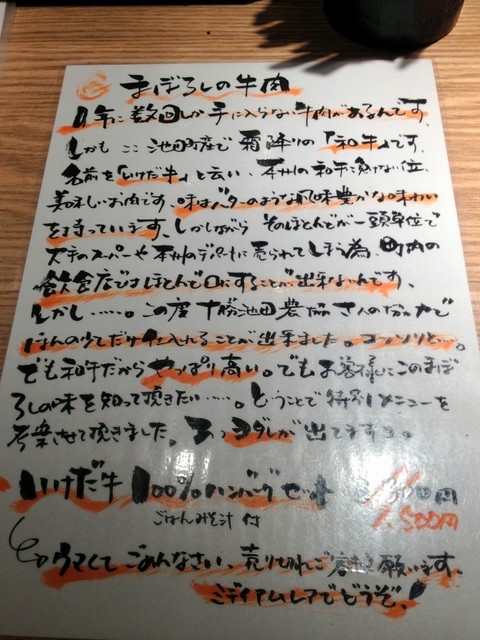 まぼろしの牛肉
1年に数回しか手に入らない牛肉があるんです。
しかも ここ 池田町産で 霜降りの「和牛」です。
名前を「いけだ牛」と云い、本州の和牛に負けない位、
美味しいお肉です。味はバターのような風味豊かな味わい
を持っています。しかしながら そのほとんどが一頭単位で
大手のスーパーや本州のデパートに売られてしまう為、町内の
飲食店ではほとんど口にすることが出来ないんです。
しかし……。この度 十勝池田農協さんの協力で
ほんの少しだけ仕入れることが出来ました。コッソリと…。
でも和牛だから やっぱり高い。でもお客様にこのまぼ
ろしの味を知って頂きたい……。ということで特別メニューを
考案させて頂きました。ヨダレが出てますョ。
いけだ牛 100%ハンバーグセット 円
ごはんみそ汁 付 1,500円
ウマくて ごめんなさい。売り切れご容赦願います。
ミディアムレアでどうぞ!